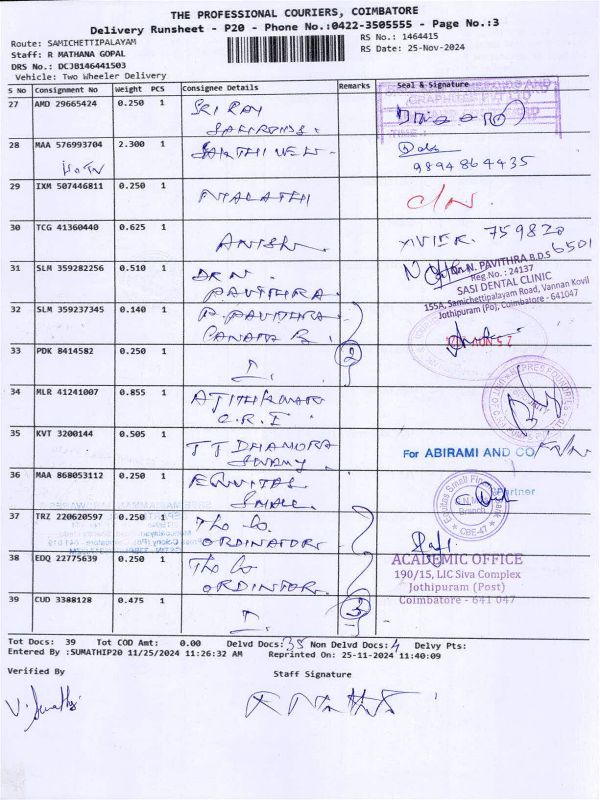 THE PROFESSIONAL COURIERS, COIMBATORE
Delivery Runsheet - P20 - Phone No.:0422-3505555 - Page No.:3
Route: SAMICHETTIPALAYAM
RS No.: 1464415
Staff: R MATHANA GOPAL
RS Date: 25-Nov-2024
DRS No.: DCJB146441503
Vehicle: Two Wheeler Delivery
S No Consignment No Weight PCS Consignee Details Remarks Seal & Signature
27 AMD 29665424 0.250 1 SRI RAY
28 MAA 576993704 2.300 1 SAKTHIVEL
9894864435
29 IXM 507446811 0.250 1 MALATHI
30 TCG 41360440 0.625 1 759820
6501
31 SLM 359282256 0.510 1 DR N.
PAVITHRA
N. PAVITHRA B.D.S
Reg.No.: 24137
SASI DENTAL CLINIC
155A, Samichettipalayam Road, Vannan Kovil
Jothipuram (Po), Coimbatore - 641047
32 SLM 359237345 0.140 1 P. PAVITHRA
CANARA B.
33 PDK 8414582 0.250 1 2
34 MLR 41241007 0.855 1
35 KVT 3200144 0.505 1 TT DHAMORA
SWAMY
For ABIRAMI AND CO
Partner
36 MAA 868053112 0.250 1 EQUITAS
SMALL
Equitas Small Finance Bank
Branch
CBE-47
37 TRZ 220620597 0.250 1 THE CO
ORDINATOR
38 EDQ 22775639 0.250 1 THE CO
ORDINTOR
ACADEMIC OFFICE
190/15, LIC Siva Complex
Jothipuram (Post)
Coimbatore - 641 047
39 CUD 3388128 0.475 1 3
Tot Docs: 39 Tot COD Amt: 0.00 Delvd Docs: 35 Non Delvd Docs: 4 Delvy Pts:
Entered By :SUMATHIP20 11/25/2024 11:26:32 AM Reprinted On: 25-11-2024 11:40:09
Verified By Staff Signature